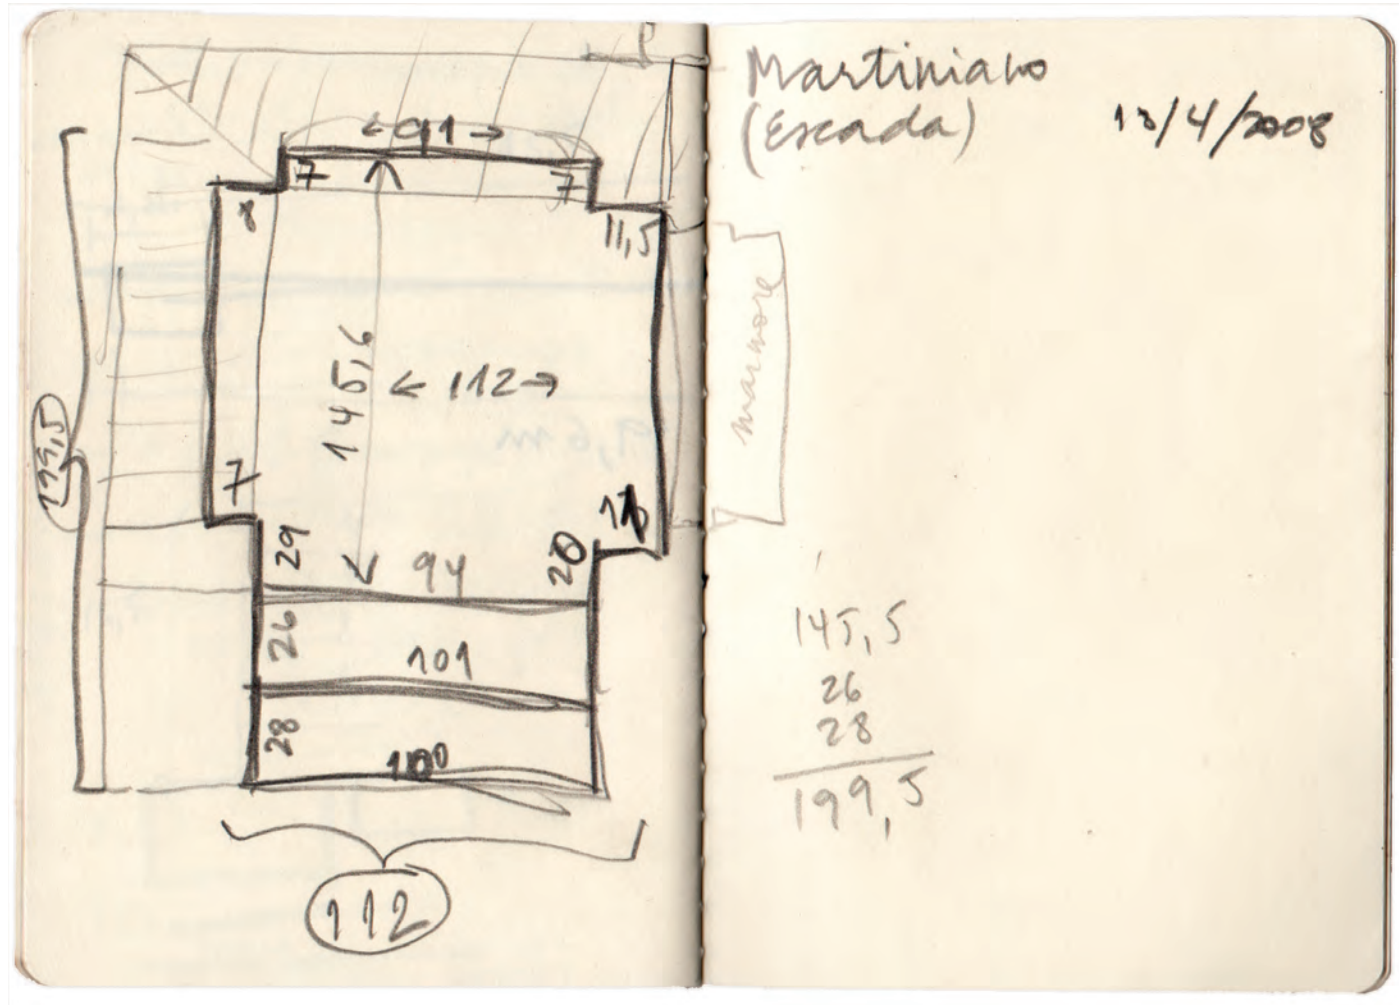 ← 91 →
7
7
8
11,5
145,6
← 112 →
199,5
7
29
94
20
26
101
28
100
112
Martiniano
(Escada)
13/4/2008
marmore
145,5
26
28
199,5